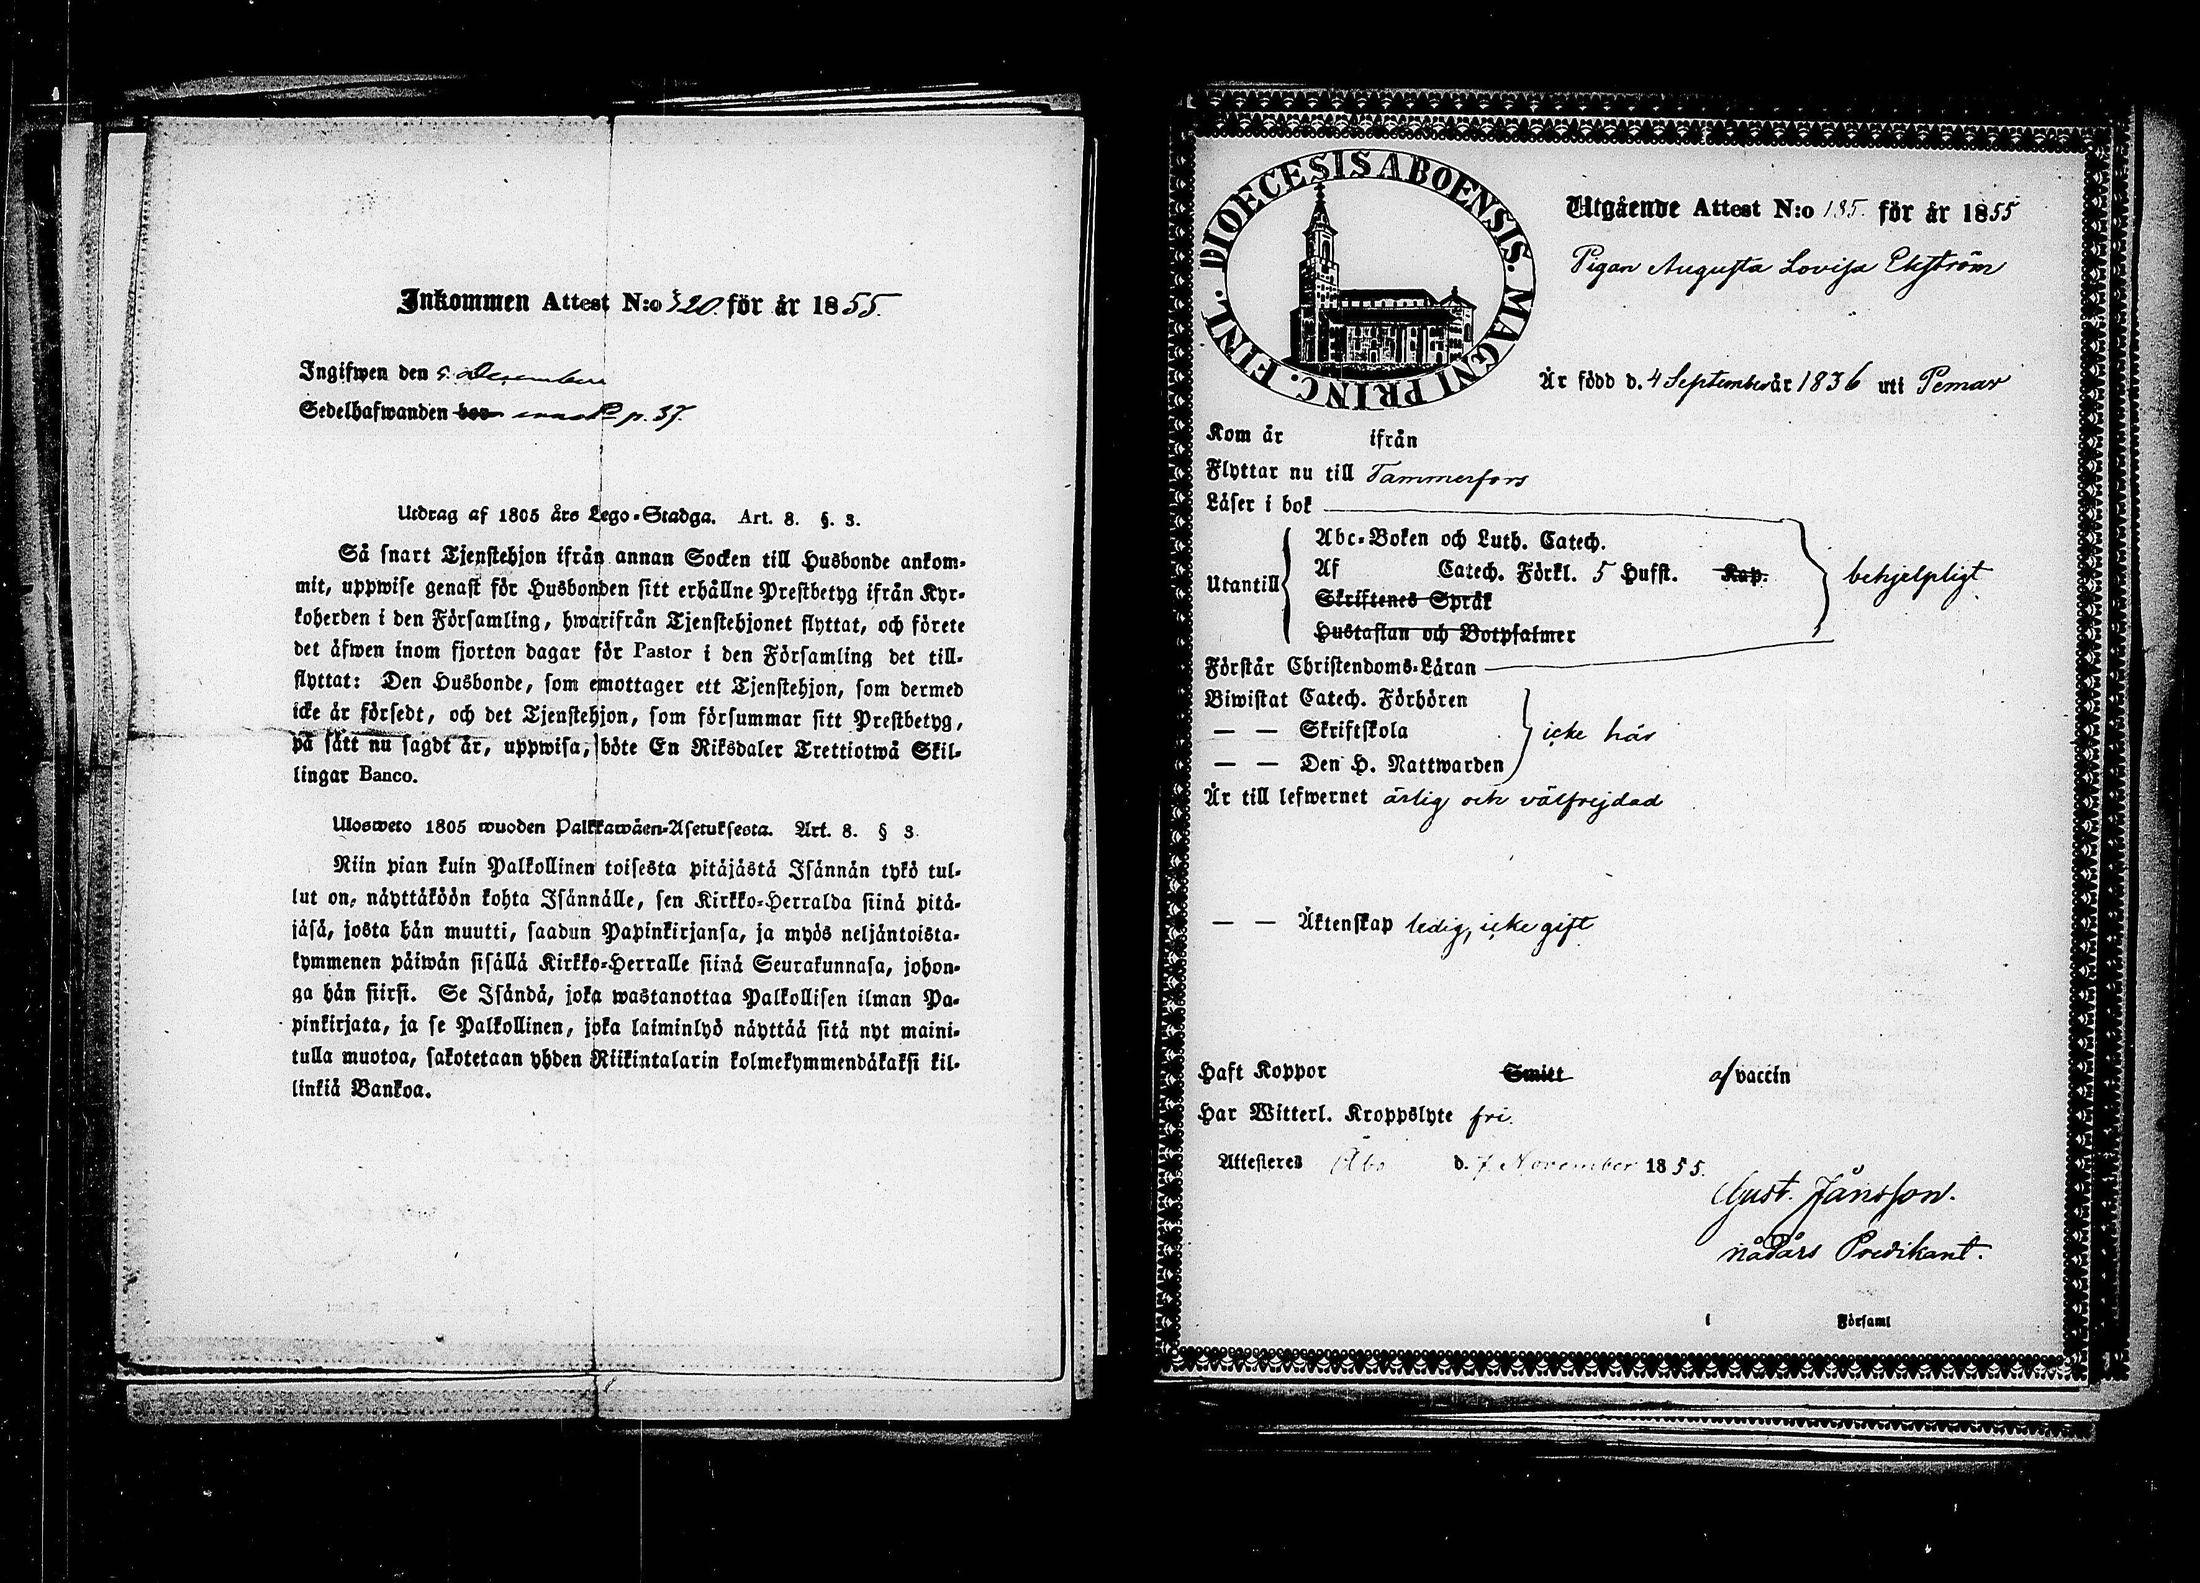 Inkommen Attest N:o 320. för år 1855.
Ingifwen den 5. December
Sedelhafwanden bor p. 37.
Utdrag af 1805 års Lego-Stadga. Art. 8. §. 3.
Så snart Tjenstehjon ifrån annan Socken till Husbonde ankom-
mit, uppwise genast för Husbonden sitt erhållne Prestbetyg ifrån Kyr-
koherden i den Församling, hwarifrån Tjenstehjonet flyttat, och förete
det äfwen inom fjorton dagar för Pastor i den Församling det till-
flyttat: Den Husbonde, som emottager ett Tjenstehjon, som dermed
icke är försedt, och det Tjenstehjon, som försummar sitt Prestbetyg,
på sätt nu sagdt är, uppwisa, böte En Riksdaler Trettiotwå Skil-
lingar Banco.
Ulosweto 1805 wuoden Palkkawäen-Asetuksesta. Art. 8. § 3
Niin pian kuin Palkollinen toisesta pitäjästä Isännän tykö tul-
lut on, näyttäköön kohta Isännälle, sen Kirkko-Herralda siinä pitä-
jäsä, josta hän muutti, saadun Papinkirjansa, ja myös neljäntoista-
kymmenen päiwän sisällä Kirkko-Herralle siinä Seurakunnasa, johon-
ga hän siirsi. Se Isändä, joka wastanottaa Palkollisen ilman Pa-
pinkirjata, ja se Palkollinen, joka laiminlyö näyttää sitä nyt maini-
tulla muotoa, sakotetaan yhden Riikintalarin kolmekymmendäkaksi kil-
linkiä Bankoa.
DIOECESIS ABOENSIS. MAGNI PRINC. FINL.
Utgående Attest N:o 185. för år 1855
Pigan Augusta Lovisa Ekström
Är född d. 4 September år 1836 uti Pemar
Kom år ifrån
Flyttar nu till Tammerfors
Läser i bok
Utantill
Abc-Boken och Luth. Catech.
Af Catech. Förkl. 5 Hufst. Kap.
Skriftenes Språk
Hustaflan och Botpsalmer
behjelpligt
Förstår Christendoms-Läran
Biwistat Catech. Förhören
— — Skriftskola
— — Den H. Nattwarden
icke här
Är till lefwernet ärlig och välfrejdad
— — Äktenskap ledig, icke gift
Haft Koppor Smitt af vaccin
Har Witterl. Kroppslyte fri.
Attesteres Åbo d. 7. November 1855.
Gust. Jånsson.
nådårs Predikant.
i Församl